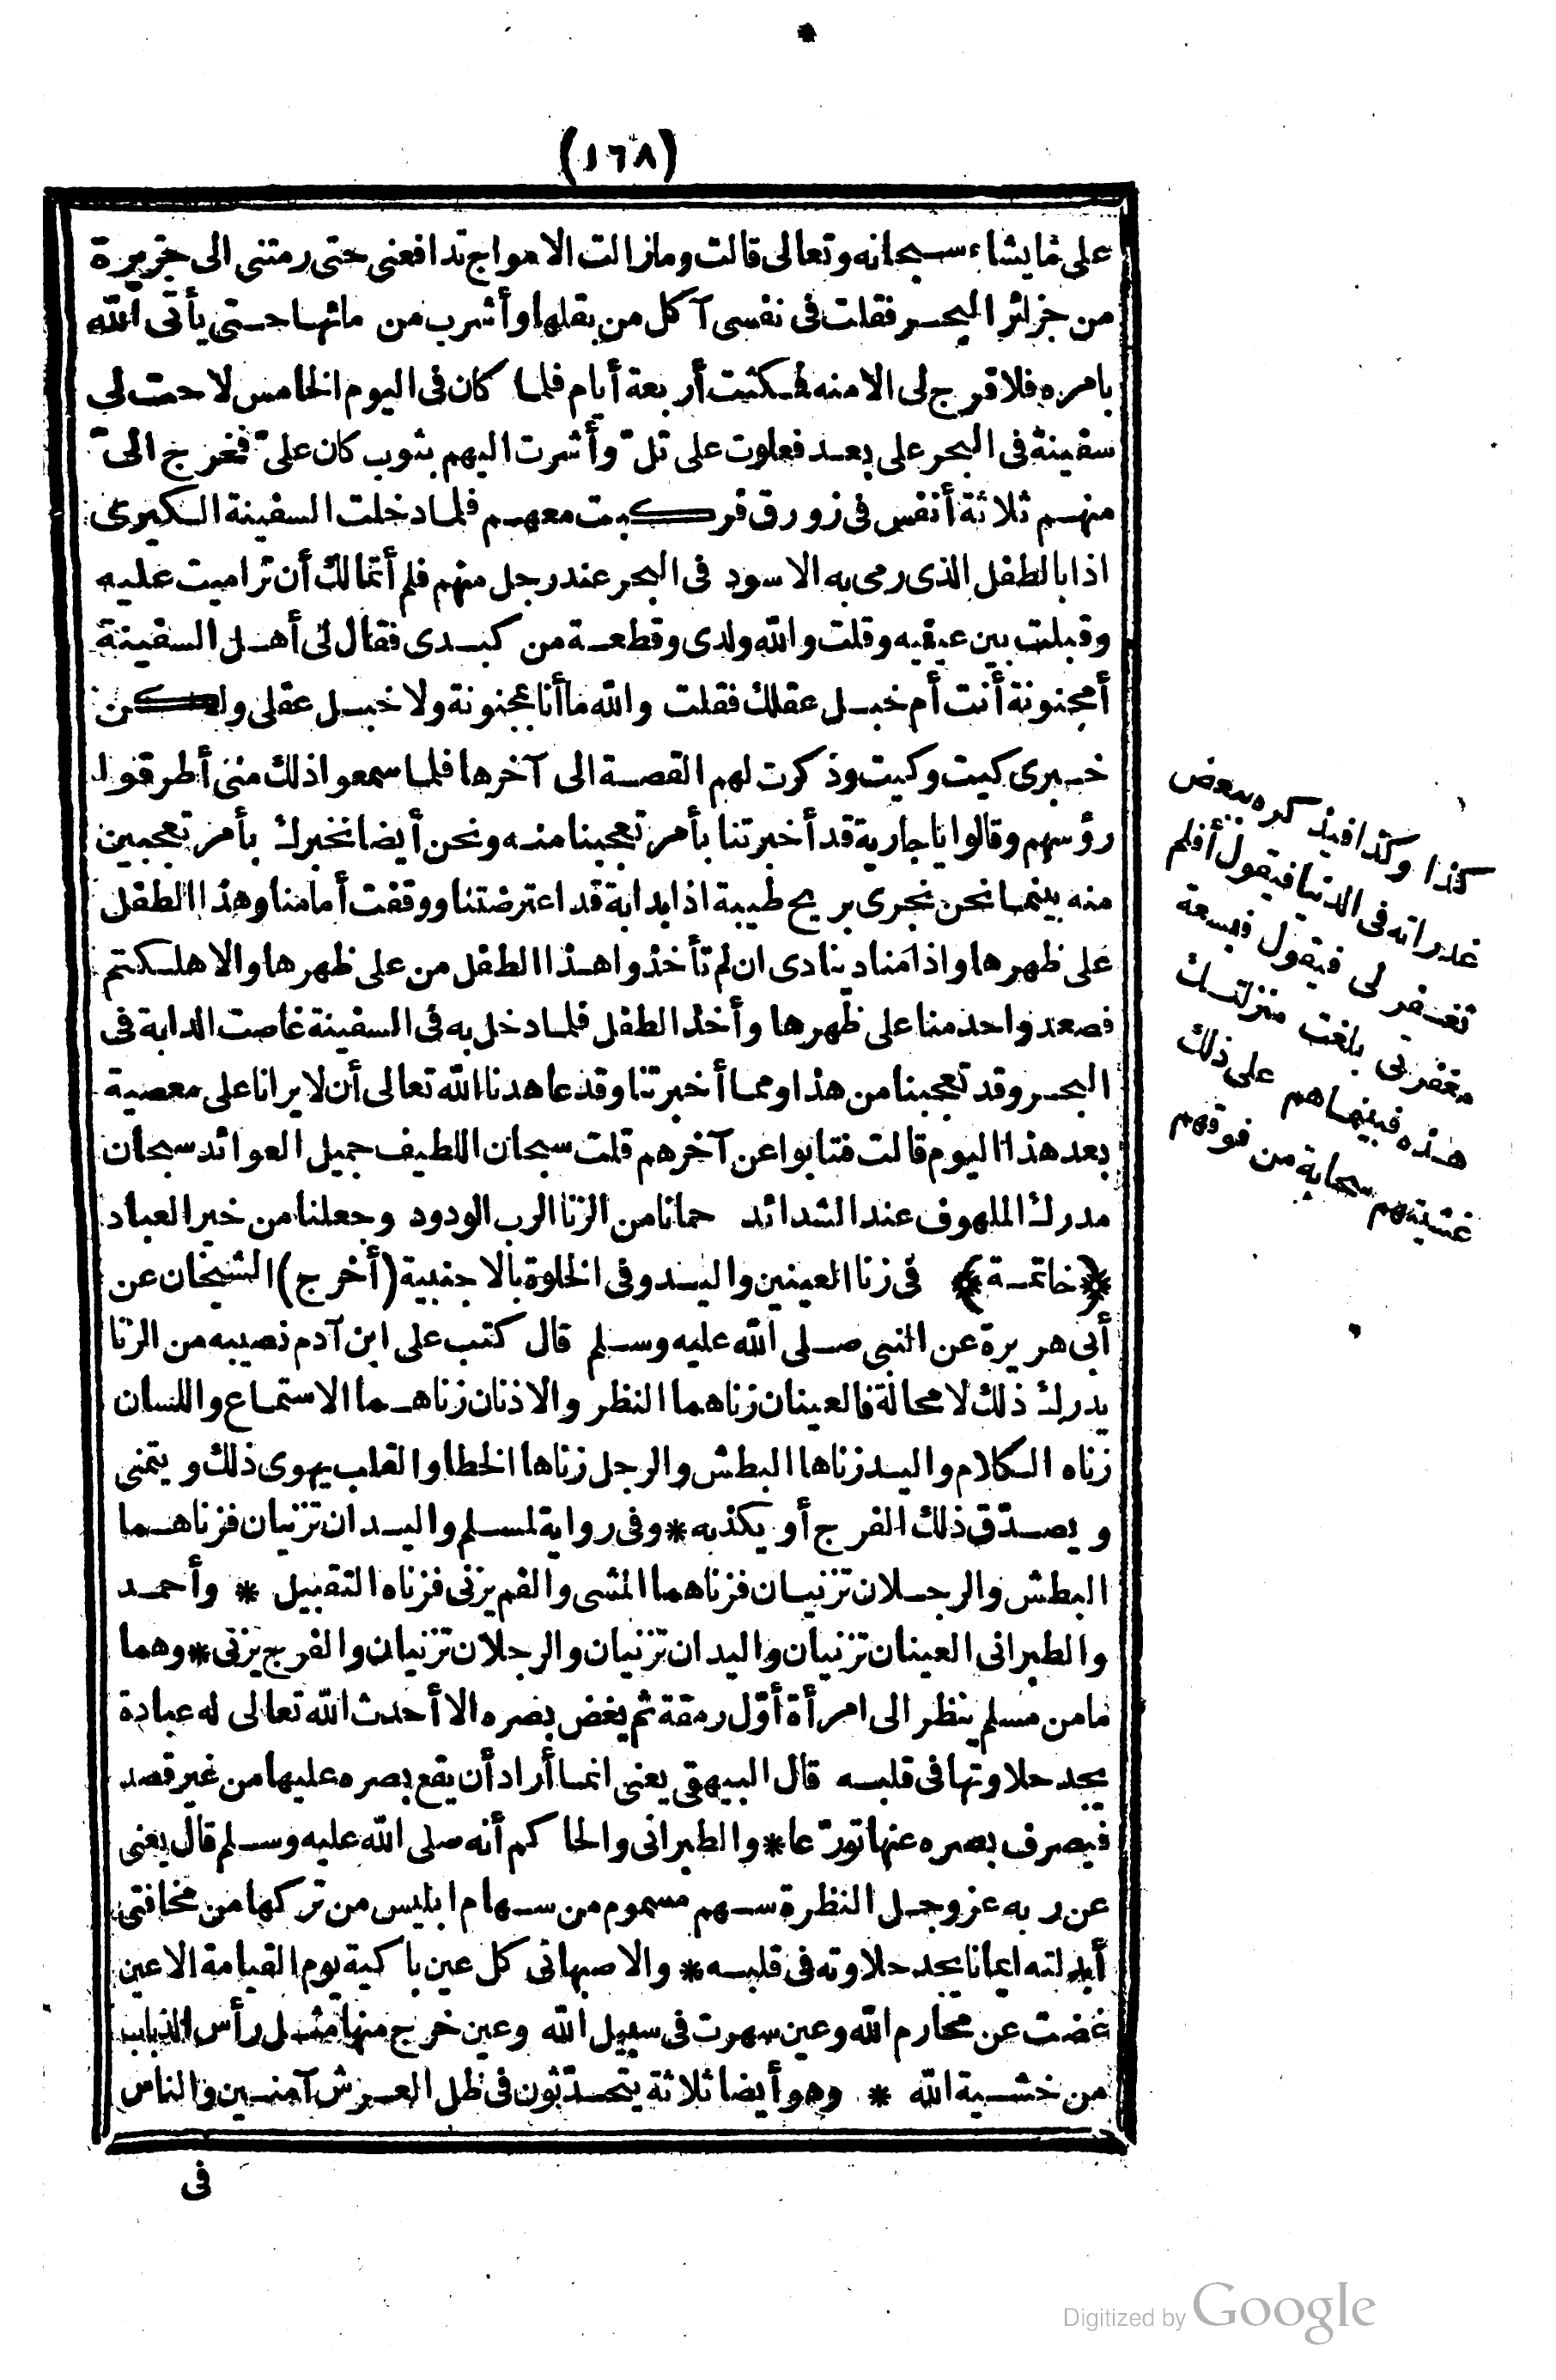 (١٦٨)
على ما يشاء سبحانه وتعالى قالت وما زالت الامواج تدافعنى حتى رمتنى الى جزيرة
من جزائر البحر فقلت فى نفسى آكل من بقلها وأشرب من مائها حتى يأتى الله
بامره فلا فرج لى الا منه فمكثت أربعة أيام فلما كان فى اليوم الخامس لاحت لى
سفينة فى البحر على بعد فعلوت على تلّ وأشرت اليهم بثوب كان علىّ فخرج الىّ
منهم ثلاثة أنفس فى زورق فركبت معهم فلما دخلت السفينة الكبرى
اذا بالطفل الذى رمى به الاسود فى البحر عند رجل منهم فلم أتمالك أن تراميت عليه
وقبلت بين عينيه وقلت والله ولدى وقطعة من كبدى فقال لى أهل السفينة
أمجنونة أنت أم خبل عقلك فقلت والله ما أنا بمجنونة ولا خبل عقلى ولكن
خبرى كيت وكيت وذكرت لهم القصة الى آخرها فلما سمعوا ذلك منى أطرقوا
رؤسهم وقالوا يا جارية قد أخبرتنا بأمر تعجبنا منه ونحن أيضا نخبرك بأمر تعجبين
منه بينما نحن نجرى بريح طيبة اذا بدابة قد اعترضتنا ووقفت أمامنا وهذا الطفل
على ظهرها واذا مناد ينادى ان لم تأخذوا هذا الطفل من على ظهرها والا هلكتم
فصعد واحد منا على ظهرها وأخذ الطفل فلما دخل به فى السفينة غاصت الدابة فى
البحر وقد تعجبنا من هذا ومما أخبرتنا وقد عاهدنا الله تعالى أن لا يرانا على معصية
بعد هذا اليوم قالت فتابوا عن آخرهم قلت سبحان اللطيف جميل العوائد سبحان
مدرك الملهوف عند الشدائد حمانا من الزنا الرب الودود وجعلنا من خير العباد
﴿خاتمة﴾ فى زنا العينين واليد وفى الخلوة بالاجنبية (أخرج) الشيخان عن
أبى هريرة عن النبى صلى الله عليه وسلم قال كتب على ابن آدم نصيبه من الزنا
يدرك ذلك لا محالة فالعينان زناهما النظر والاذنان زناهما الاستماع واللسان
زناه الكلام واليد زناها البطش والرجل زناها الخطا والقلب يهوى ذلك ويتمنى
ويصدّق ذلك الفرج أو يكذبه * وفى رواية لمسلم واليدان تزنيان فزناهما
البطش والرجلان تزنيان فزناهما المشى والفم يزنى فزناه التقبيل * وأحمد
والطبرانى العينان تزنيان واليدان تزنيان والرجلان تزنيان والفرج يزنى * وهما
ما من مسلم ينظر الى امرأة أوّل رمقة ثم يغض بصره الا أحدث الله تعالى له عبادة
يجد حلاوتها فى قلبه قال البيهقى يعنى انما أراد أن يقع بصره عليها من غير قصد
فيصرف بصره عنها تورّعا * والطبرانى والحاكم أنه صلى الله عليه وسلم قال يعنى
عن ربه عز وجل النظرة سهم مسموم من سهام ابليس من تركها من مخافتى
أبدلته ايمانا يجد حلاوته فى قلبه * والاصبهانى كل عين باكية يوم القيامة الا عين
غضت عن محارم الله وعين سهرت فى سبيل الله وعين خرج منها مثل رأس الذباب
من خشية الله * وهو أيضا ثلاثة يتحدّثون فى ظل العرش آمنين والناس
فى
كذا وكذا فيذكره ببعض
غدراته فى الدنيا فيقول أفلم
تغفر لى فيقول فبسعة
مغفرتى بلغت منزلتك
هذه فبينما هم على ذلك
غشيتهم سحابة من فوقهم
Digitized by Google